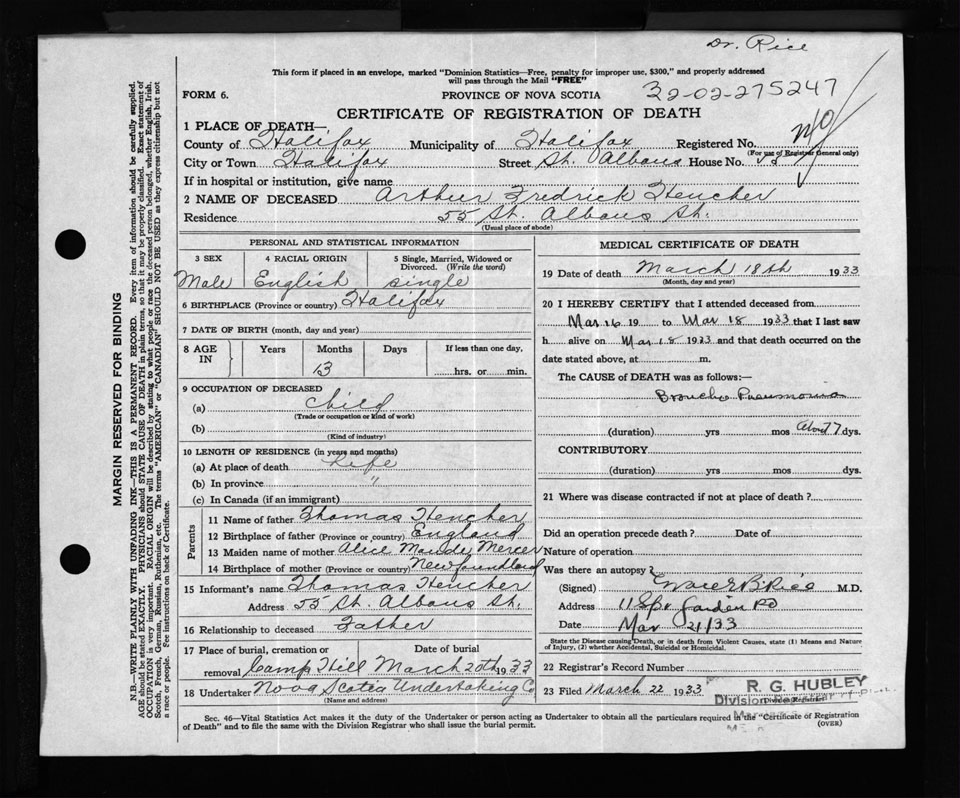 Dr. Rice
This form if placed in an envelope, marked "Dominion Statistics—Free, penalty for improper use, $300," and properly addressed
will pass through the Mail "FREE"
FORM 6.
PROVINCE OF NOVA SCOTIA
32-02-275247
CERTIFICATE OF REGISTRATION OF DEATH
1 PLACE OF DEATH—
County of Halifax Municipality of Halifax Registered No.
(For use of Registrar General only)
City or Town Halifax Street St. Albans House No.
If in hospital or institution, give name
2 NAME OF DECEASED Arthur Fredrick Hencher
Residence 55 St. Albans St.
(Usual place of abode)
PERSONAL AND STATISTICAL INFORMATION
3 SEX 4 RACIAL ORIGIN 5 Single, Married, Widowed or
Divorced. (Write the word)
Male English Single
6 BIRTHPLACE (Province or country) Halifax
7 DATE OF BIRTH (month, day and year)
8 AGE IN Years Months Days If less than one day,
13 hrs. or min.
9 OCCUPATION OF DECEASED
(a) Child
(Trade or occupation or kind of work)
(b)
(Kind of industry)
10 LENGTH OF RESIDENCE (in years and months)
(a) At place of death Life
(b) In province "
(c) In Canada (if an immigrant)
Parents
11 Name of father Thomas Hencher
12 Birthplace of father (Province or country) England
13 Maiden name of mother Alice Maude Mercer
14 Birthplace of mother (Province or country) Newfoundland
15 Informant's name Thomas Hencher
Address 55 St. Albans St.
16 Relationship to deceased Father
17 Place of burial, cremation or Date of burial
removal Camp Hill March 20th 1933
18 Undertaker Nova Scotia Undertaking Co
(Name and address)
MEDICAL CERTIFICATE OF DEATH
19 Date of death March 18th 1933
(Month, day and year)
20 I HEREBY CERTIFY that I attended deceased from
Mar 16 19 to Mar 18 1933 that I last saw
h alive on Mar 18 1933 and that death occurred on the
date stated above, at m.
The CAUSE of DEATH was as follows:—
Broncho Pneumonia
(duration) yrs mos About 7 dys.
CONTRIBUTORY
(duration) yrs mos dys.
21 Where was disease contracted if not at place of death?
Did an operation precede death? Date of
Nature of operation
Was there an autopsy?
(Signed) M.D.
Address Garden Rd
Date Mar 21/33
State the Disease causing Death, or in death from Violent Causes, state (1) Means and Nature
of Injury, (2) whether Accidental, Suicidal or Homicidal.
22 Registrar's Record Number
23 Filed March 22 1933
R. G. HUBLEY
Division Registrar
(Division Registrar)
Sec. 46—Vital Statistics Act makes it the duty of the Undertaker or person acting as Undertaker to obtain all the particulars required in the "Certificate of Registration
of Death" and to file the same with the Division Registrar who shall issue the burial permit.
(OVER)
MARGIN RESERVED FOR BINDING
N.B.—WRITE PLAINLY WITH UNFADING INK—THIS IS A PERMANENT RECORD. Every item of information should be carefully supplied.
AGE should be stated EXACTLY. PHYSICIANS should STATE CAUSE OF DEATH in plain terms, so that it may be properly classified. Exact statement of
OCCUPATION is very important. RACIAL ORIGIN will be described by stating to what people or race the deceased person belonged, whether English, Irish,
Scotch, French, German, Russian, Ruthenian, etc. The terms "AMERICAN" or "CANADIAN" SHOULD NOT BE USED as they express citizenship but not
a race or people. Fee instructions on back of Certificate.